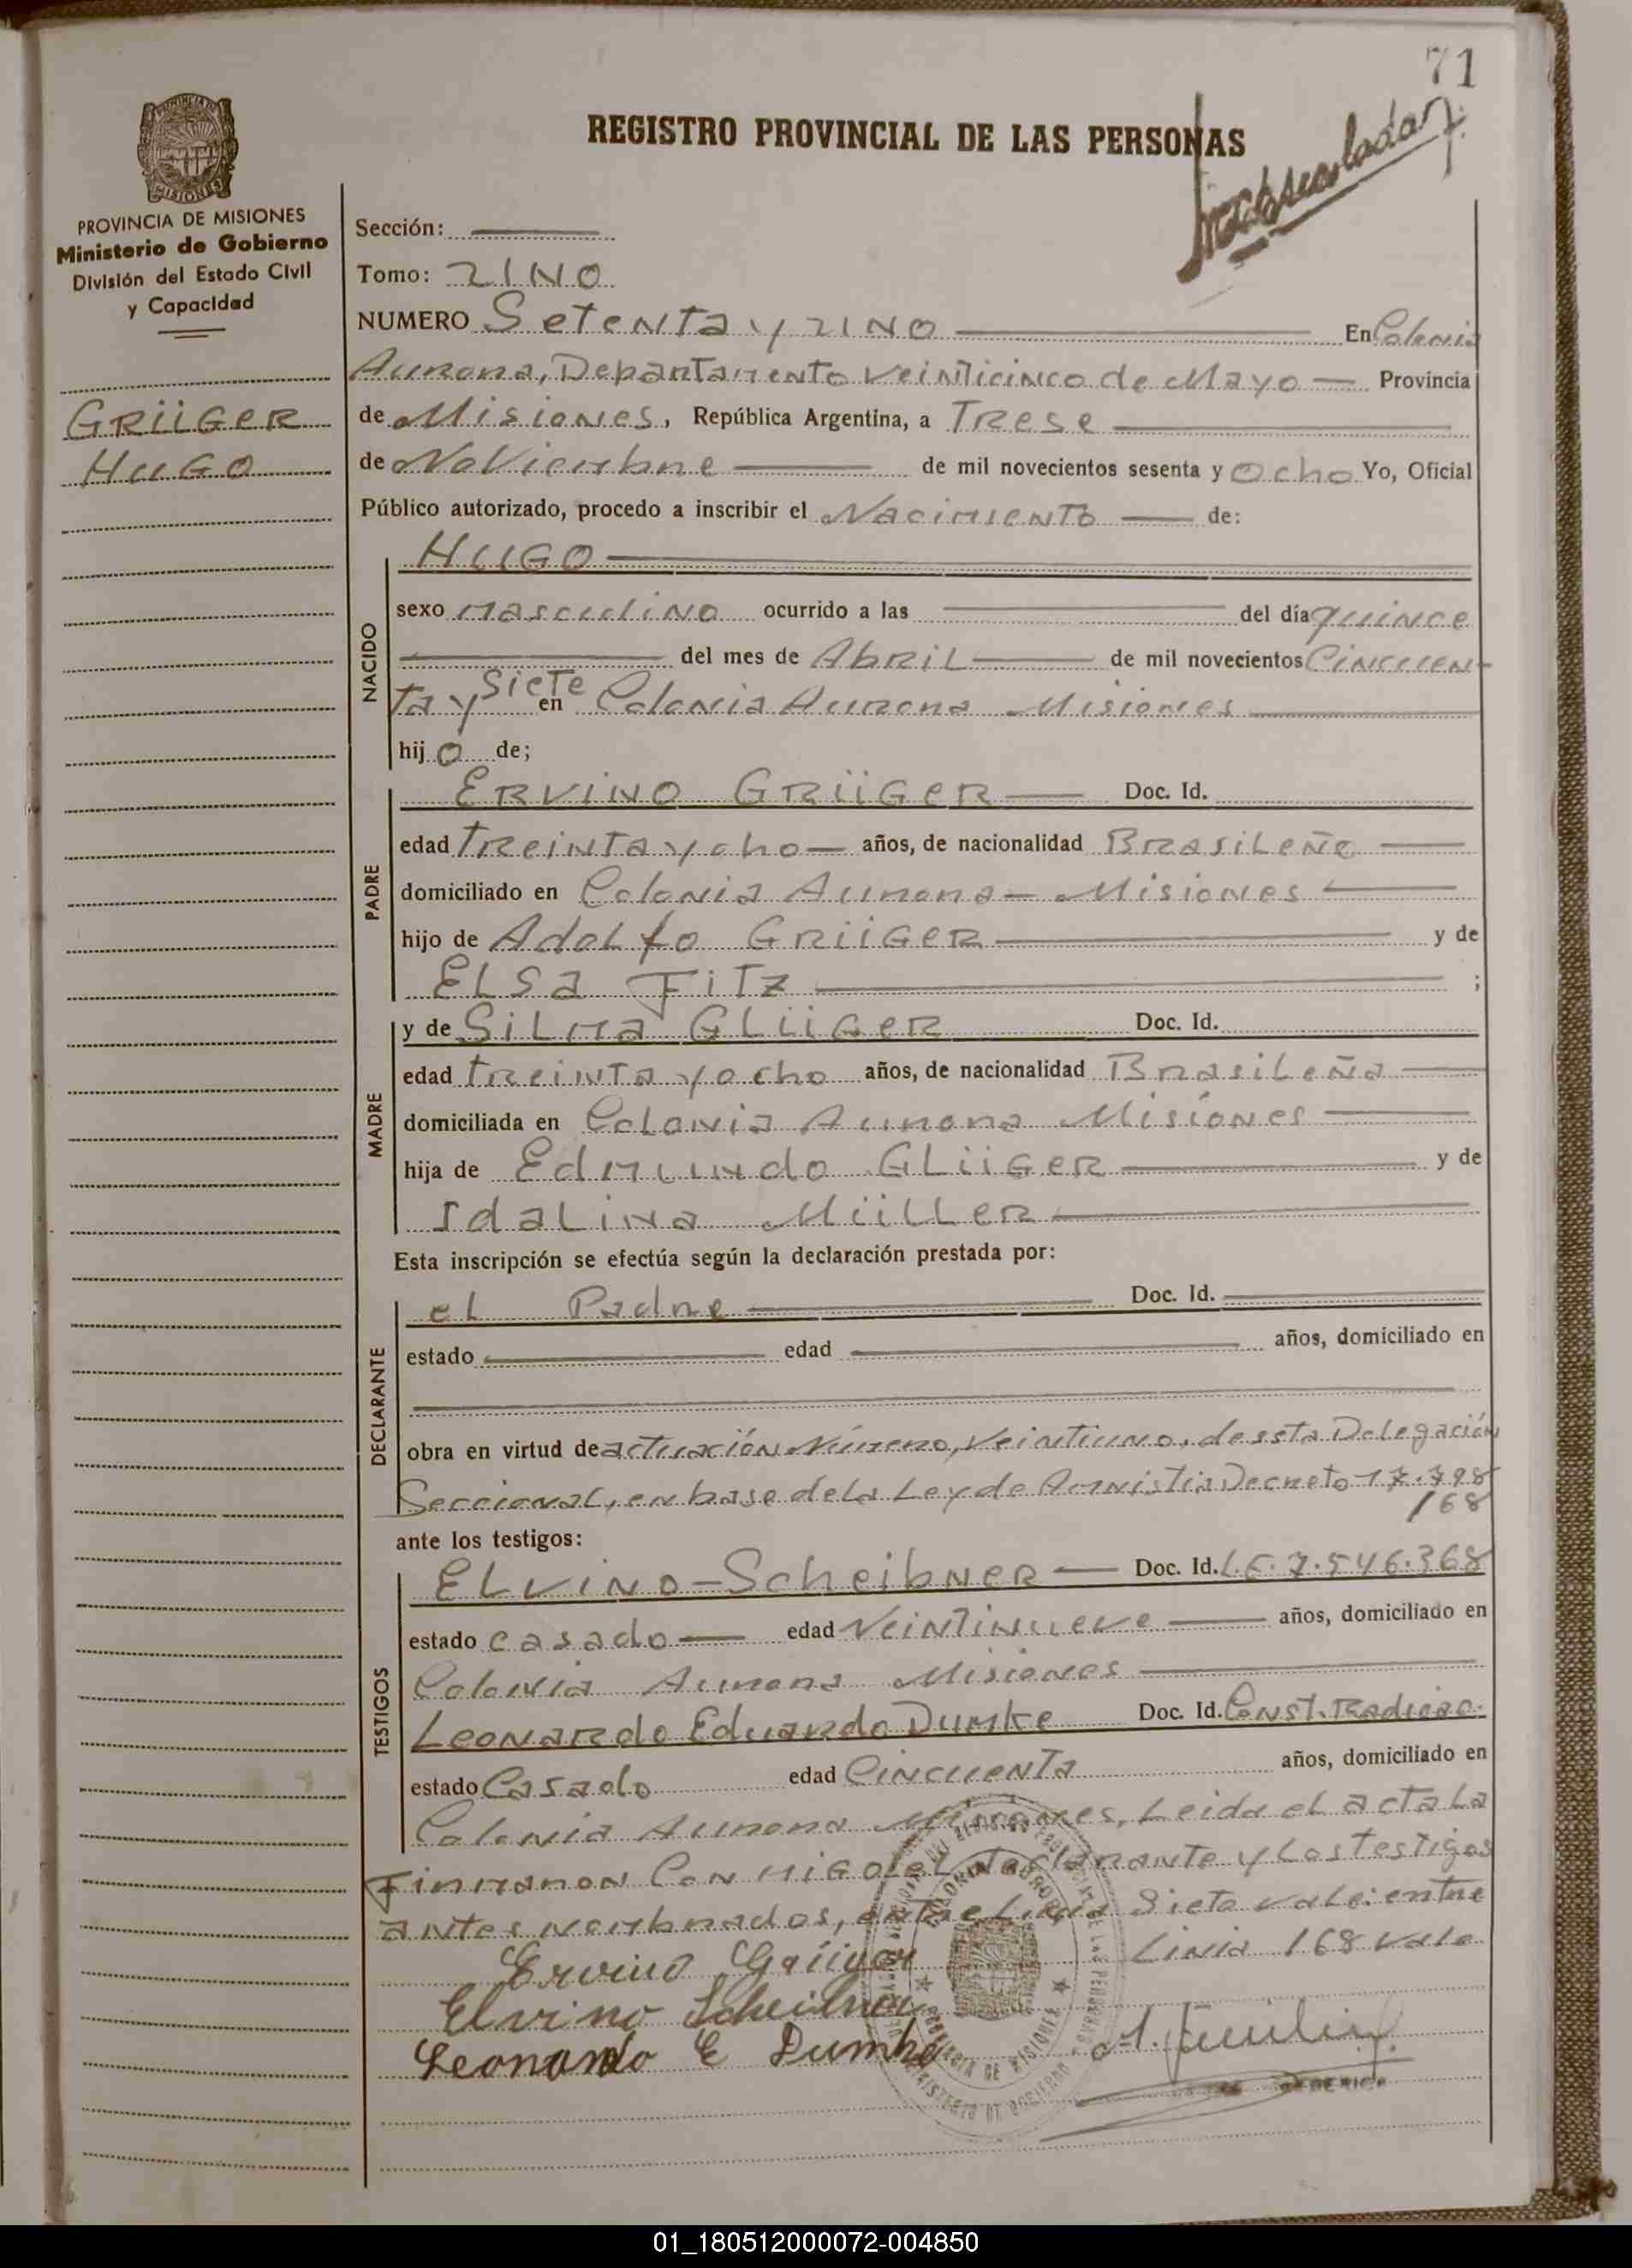 71
REGISTRO PROVINCIAL DE LAS PERSONAS
PROVINCIA DE MISIONES
Ministerio de Gobierno
División del Estado Civil
y Capacidad
GRÜGER
HUGO
Sección:
Tomo: UNO
NUMERO Setenta y UNO En Colonia
Aurora, Departamento Veinticinco de Mayo Provincia
de Misiones, República Argentina, a Trese
de Noviembre de mil novecientos sesenta y ocho Yo, Oficial
Público autorizado, procedo a inscribir el Nacimiento de:
NACIDO
HUGO
sexo masculino ocurrido a las del día quince
del mes de Abril de mil novecientos Cincuen-
ta y Siete en Colonia Aurora Misiones
hijo de;
PADRE
ERVINO GRÜGER Doc. Id.
edad treinta y cho años, de nacionalidad Brasileño
domiciliado en Colonia Aurora - Misiones
hijo de Adolfo GRÜGER y de
ELSA FITZ ;
MADRE
y de SILMA GLÜGER Doc. Id.
edad treinta y ocho años, de nacionalidad Brasileña
domiciliada en Colonia Aurora Misiones
hija de Edmundo GLÜGER y de
IdaLina MÜLLER
Esta inscripción se efectúa según la declaración prestada por:
DECLARANTE
el Padre Doc. Id.
estado edad años, domiciliado en
obra en virtud de actuación Número, Veintiuno, de esta Delegación
Seccional, en base de la Ley de Amnistia Decreto 17.798
/68
ante los testigos:
TESTIGOS
ELVINO - Scheibner Doc. Id. L.E. 7.546.368
estado casado edad Veintinueve años, domiciliado en
Colonia Aurora Misiones
Leonardo Eduardo Dumke Doc. Id. Const. Radicac.
estado Casado edad Cincuenta años, domiciliado en
Colonia Aurora Misiones, Leida el acta La
Firmaron Con migo el declarante y Los testigos
antes nombrados, entre Linia Siete vale: entre
Linia 168 vale
Ervino Grüger
Elvino Scheibner
Leonardo E Dumke
01_180512000072-004850